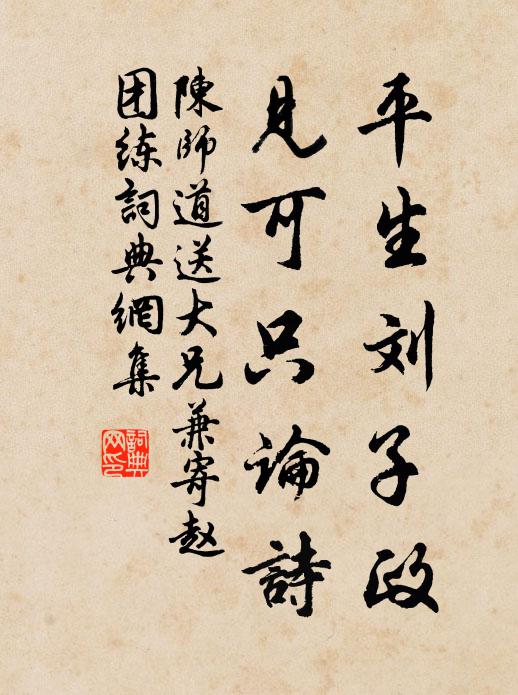 平生刘子政
見可只論詩
陳師道送大兄兼寄赵
团练詞典網集
詞典
网印